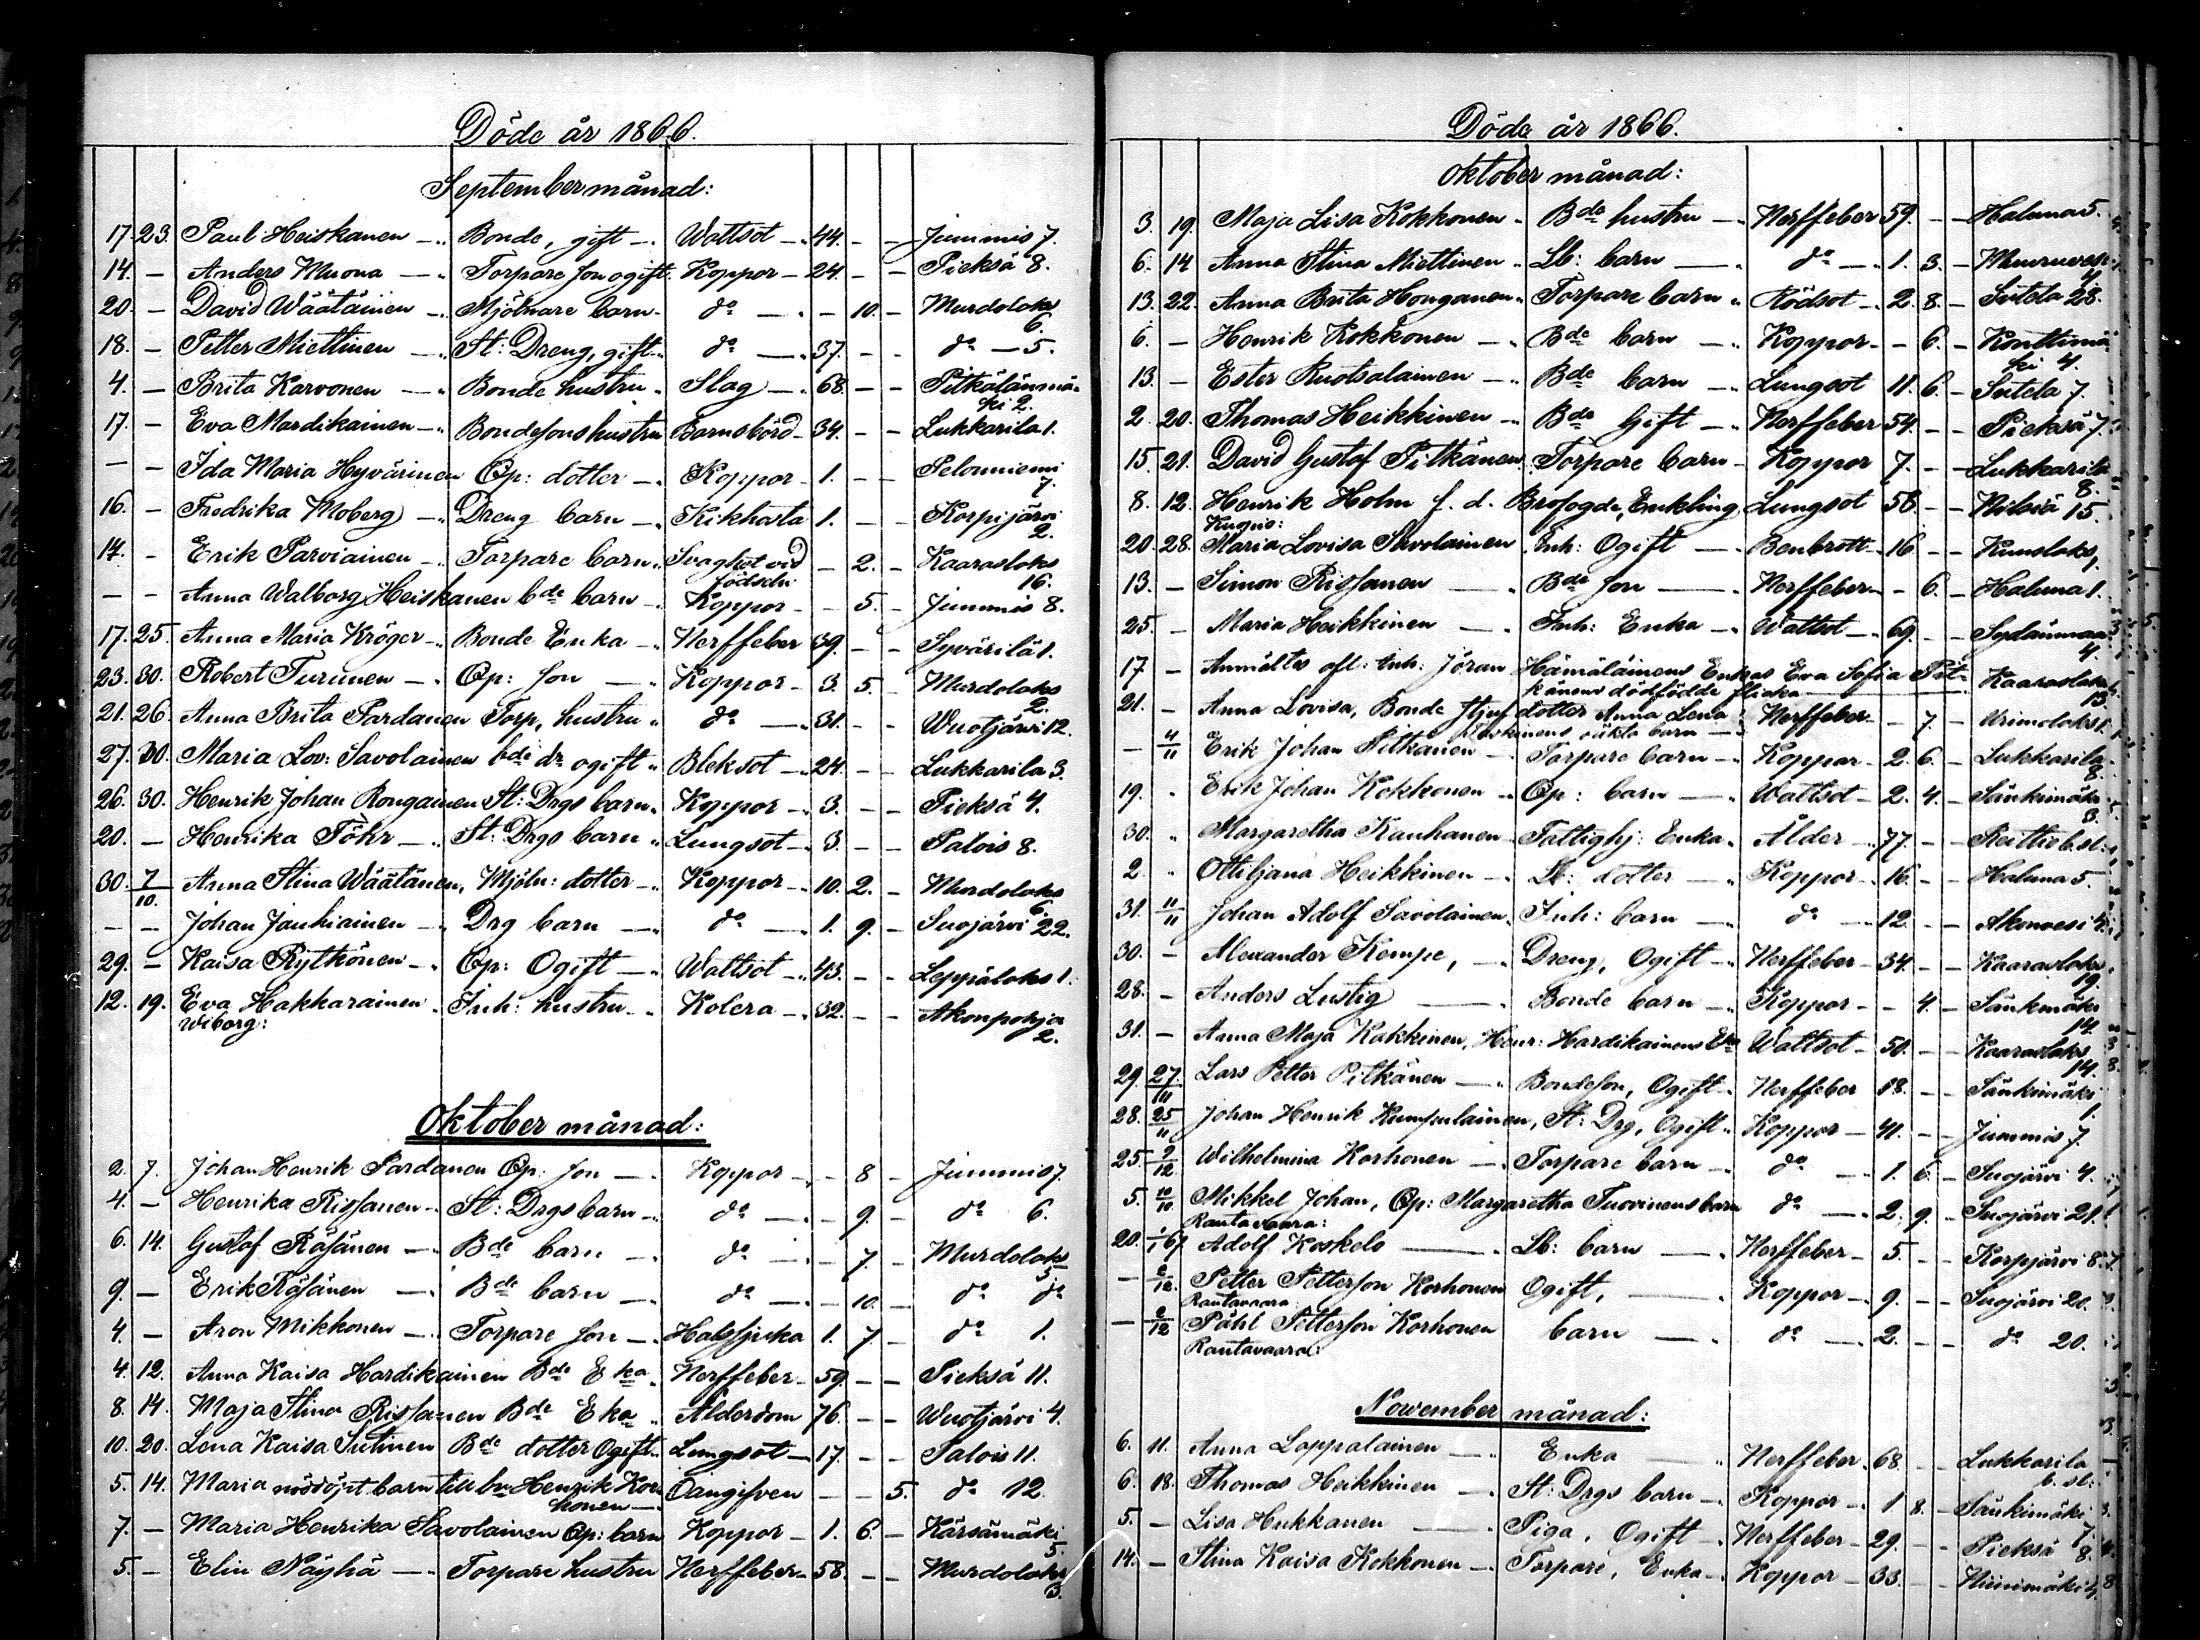 Döde år 1866.
September månad:
17. 23. Paul Heiskanen — Bonde, gift — Wattsot — 44. — — Jummis 7.
14. — Anders Muona — Torpare son ogift. Koppor — 24 — — Pieksä 8.
20. — David Wäätäinen — Mjölnare barn — do — — 10. — Murdoloks 6.
18. — Petter Miettinen — St: Dreng, gift — do — 37. — — do — 5.
4. — Brita Karvonen — Bonde hustru — Slag — 68. — — Pitkälänmäki 2.
17. — Eva Mardikainen — Bondesons hustru Barnsbörd — 34. — — Lukkarila 1.
— — Ida Maria Hyvärinen Qp: dotter — Koppor — 1. — — Pelonniemi 7.
16. — Fredrika Moberg — Dreng barn — Kikhosta 1. — — Korpijärvi 2.
14. — Erik Parviainen — Torpare barn Svaghet vid födseln — 2. — Kaarasloks 16.
— — Anna Walborg Heiskanen bde barn — Koppor — — 5. — Jummis 8.
17. 25. Anna Maria Kröger — Bonde Enka — Nerffeber 39. — — Syvärilä 1.
23. 30. Robert Turunen — Qp: son — Koppor — 3. 5. — Murdoloks 2.
21. 26. Anna Brita Pardanen Torp, hustru do — 31. — — Wuotjärvi 12.
27. 30. Maria Lov: Savolainen bde dr ogift Bleksot — 24. — — Lukkarila 3.
26. 30. Henrik Johan Rongainen St: Drgs barn Koppor — 3. — — Pieksä 4.
20. — Henrika Föhr — St: Drgs barn Lungsot — 3. — — Palois 8.
30. 7/10. Anna Stina Wäätänen, Mjöln: dotter — Koppor — 10. 2. — Murdoloks 6.
— — Johan Jauhiainen — Drg barn — do — 1. 9. — Suojärvi 22.
29. — Kaisa Rytkönen — Qp: Ogift — Wattsot — 43. — — Leppäloks 1.
12. 19. Eva Hakkarainen Inh: hustru — Kolera — 32. — — Akonpohja 2.
Wiborg:
Oktober månad:
2. 7. Johan Henrik Pardanen Qp. son — Koppor — — 8 — Jummis 7.
4. — Henrika Rissanen — St: Drgs barn — do — — 9. — do 6.
6. 14. Gustaf Räsänen — Bde barn — do — — 7. — Murdoloks 5
9. — Erik Räsänen — Bde barn — do — — 10. — do do
4. — Aron Mikkonen — Torpare son — Halssjuka 1. 7. — do 1.
4. 12. Anna Kaisa Hardikainen Bde Eka Nerffeber — 59. — — Pieksä 11.
8. 14. Maja Stina Rissanen Bde Eka Ålderdom 76. — — Wuotjärvi 4.
10. 20. Lena Kaisa Sutinen Bde dotter Ogift Lungsot — 17. — — Palois 11.
5. 14. Maria nöddöpt barn till bn Henrik Korhonen — Oangifven — — 5. do 12.
7. — Maria Henrika Savolainen Qp: barn Koppor — 1. 6. — Kärsämäki 5.
5. — Elin Näyhä — Torpare hustru Nerffeber — 58. — — Murdoloks 3.
Döde år 1866.
Oktober månad:
3. 19. Maja Lisa Kokkonen Bde hustru — Nerffeber 59. — — Haluna 5.
6. 14 Anna Stina Miettinen Lb: barn — do — 1. 3. —
13. 22. Anna Brita Honganen Torpare barn Rödsot — 2. 8. — Sutela 28.
6. — Henrik Kokkonen — Bde barn — Koppor — — 6. — Konttimäki 4.
13. — Ester Ruotsalainen — Bde barn — Lungsot 11. 6. — Sutela 7.
2. 20. Thomas Heikkinen — Bde Gift — Nerffeber 54. — — Pieksä 7.
15. 21. David Gustaf Pitkänen Torpare barn — Koppor 7. — — Lukkarila 8.
8. 12. Henrik Holm f. d. Brofogde, Enkling Lungsot 58 — — Nilsiä 15.
Kuopio:
20. 28. Maria Lovisa Savolainen Inh: Ogift — Benbrott — 16 — — Kuusloks 1.
13. — Simon Rissanen — Bde son — Nerffeber — — 6. — Haluna 1.
25. — Maria Heikkinen — Inh: Enka — Wattsot — 69. — — Sydänmaa 4.
17 — Anmältes afl: Inh: Jöran Hämäläinens Enkas Eva Sofia Pitkänens dödfödde flicka — Kaarasloks 13.
21. — Anna Lovisa, Bonde styfdotter Anna Lena oäkta barn — Nerffeber — — 7. —
— 4/11 Erik Johan Pitkänen — Torpare barn — Koppor — 2. 6. — Lukkarila 8.
19. Erik Johan Kokkonen — Qp: barn — Wattsot — 2. 4. — Sänkimäki 3.
30. Margaretha Kauhanen Fattighj: Enka Ålder — 77. — —
2. Ottiljana Heikkinen — Lb: dotter — Koppor — 16. — — Haluna 5.
31. 11/11 Johan Adolf Savolainen Inh: barn — do — 12. — — Akonvesi 4.
30. — Alexander Kempe, — Dreng, Ogift — Nerffeber — 34. — — Kaarasloks 19.
28. — Anders Lustig — Bonde barn — Koppor — — 4. — Sänkimäki 14.
31. — Anna Maja Kakkinen, Henr: Hardikainens Eka Wattsot — 50. — — Kaarasloks 14.
29 27/11 Lars Petter Pitkänen — Bondeson, Ogift — Nerffeber 18. — — Sänkimäki 1.
28. 25/11 Johan Henrik Kumpulainen, St: Drg, Ogift Koppor — 41. — — Jummis 7.
25. 9/12 Wilhelmina Korhonen — Torpare barn — do — 1. 6. — Suojärvi 4.
5. 10/10 Mikkel Johan, Qp: Margaretha Tuovinens barn do — 2. 9. — Suojärvi 21.
Rautavaara:
20. 1/1 67 Adolf Koskelo — Lb: barn — Nerffeber — 5. — — Korpijärvi 8.
— 2/12 Petter Petterson Korhonen Ogift, — Koppor — 9. — — Suojärvi 20.
Rautavaara
— 2/12 Påhl Petterson Korhonen barn — do — 2. — — do 20.
Rautavaara:
Nowember månad:
6. 11. Anna Lappalainen — Enka — Nerffeber 68. — — Lukkarila b. sl:
6. 18. Thomas Heikkinen — St: Drgs barn — Koppor — 1 8. — Sänkimäki 7.
5. — Lisa Hukkanen — Piga, Ogift — Nerffeber — 29. — — Pieksä 8.
14. — Stina Kaisa Kokkonen — Torpare, Enka — Koppor — 33. — — Niinimäki 4.